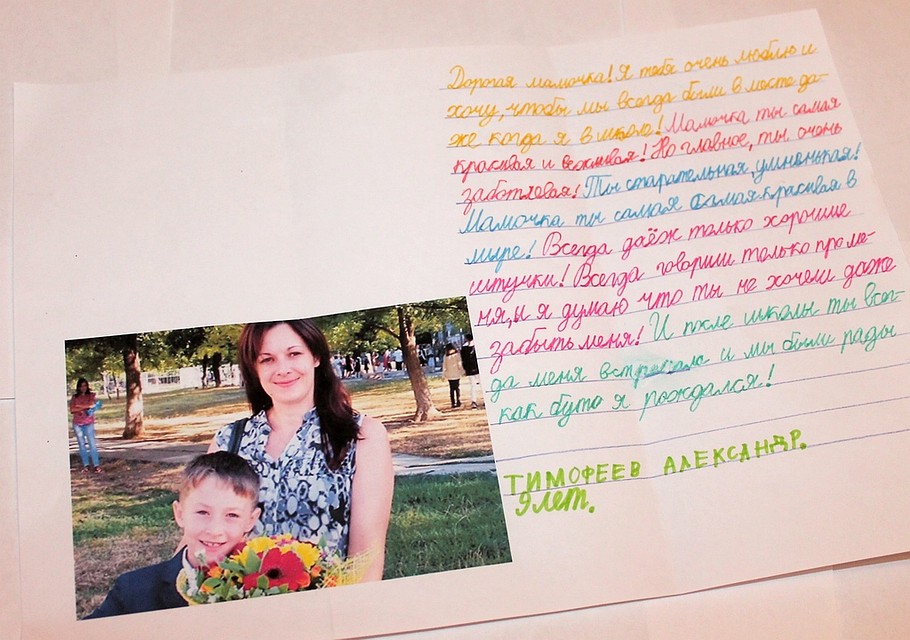 Дорогая мамочка! Я тебя очень люблю и
хочу, чтобы мы всегда были в месте да-
же когда я в школе! Мамочка ты самая
красивая и вежливая! Но главное, ты очень
заботлевая! Ты старательная, умненькая!
Мамочка ты самая самая красивая в
мире! Всегда даёж только хорошие
штучки! Всегда говориш только про ме-
ня, и я думаю что ты не хочеш даже
забыть меня! И после школы ты всег-
да меня встречала и мы были рады
как буто я рождался!
ТИМОФЕЕВ АЛЕКСАНДР.
9 лет.